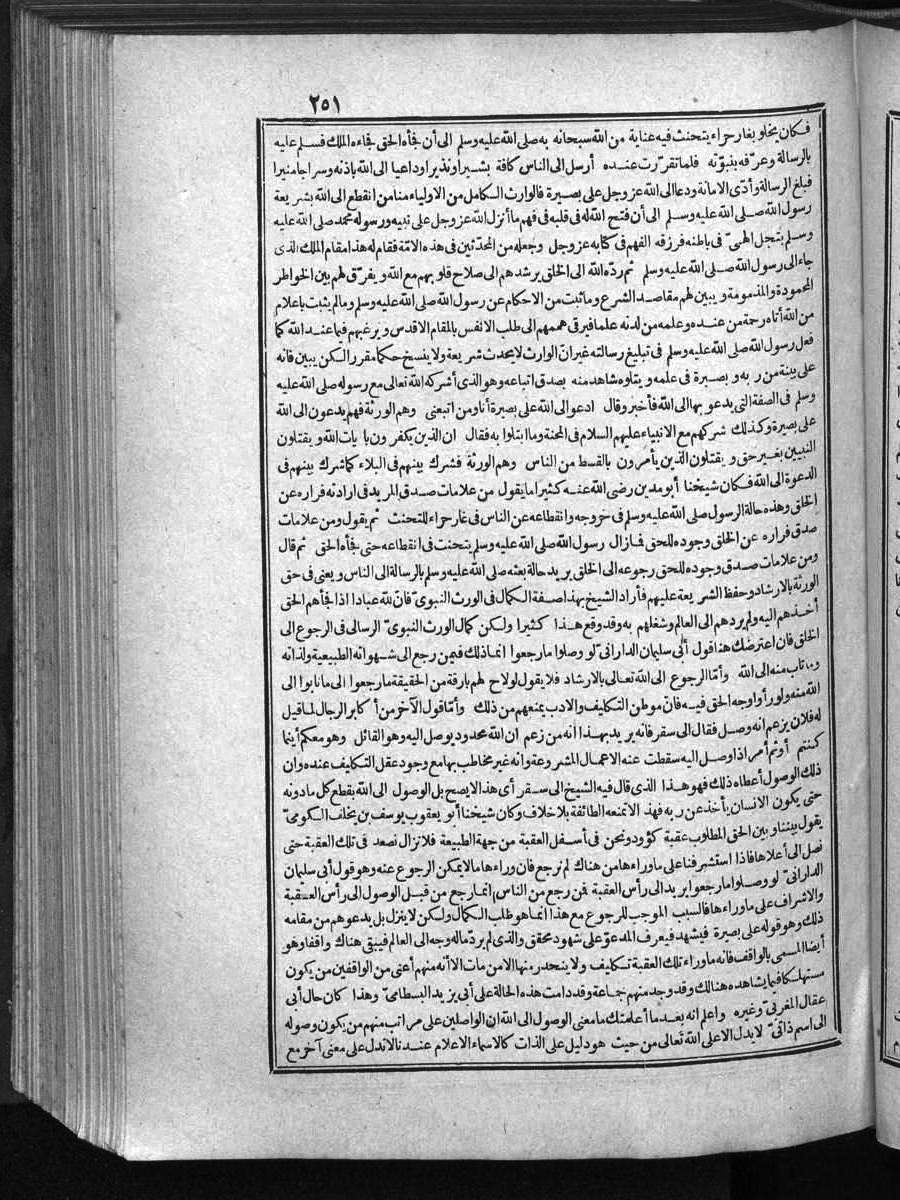 ٢٥١
فكان يخلو بغار حراء يتحنث فيه عناية من الله سبحانه به صلى الله عليه وسلم الى أن فجأه الحق فجاءه الملك فسلم عليه
بالرسالة وعرّفه بنبوّته فلما تقرّرت عنده أرسل الى الناس كافة بشيرا ونذيرا وداعيا الى الله باذنه وسراجا منيرا
فبلغ الرسالة وأدّى الامانة ودعا الى الله عز وجل على بصيرة فالوارث الكامل من الاولياء منا من انقطع الى الله بشريعة
رسول الله صلى الله عليه وسلم الى أن فتح الله له فى قلبه فى فهم ما أنزل الله عز وجل على نبيه ورسوله محمد صلى الله عليه
وسلم بتجل الهىّ فى باطنه فرزقه الفهم فى كتابه عز وجل وجعله من المحدّثين فى هذه الامّة فقام له هذا مقام الملك الذى
جاء الى رسول الله صلى الله عليه وسلم ثم ردّه الله الى الخلق يرشدهم الى صلاح قلوبهم مع الله ويفرّق لهم بين الخواطر
المحمودة والمذمومة ويبين لهم مقاصد الشرع وما ثبت من الاحكام عن رسول الله صلى الله عليه وسلم وما لم يثبت باعلام
من الله أتاه رحمة من عنده وعلمه من لدنه علما فيرقى هممهم الى طلب الانفس بالمقام الاقدس ويرغبهم فيما عند الله كما
فعل رسول الله صلى الله عليه وسلم فى تبليغ رسالته غير انّ الوارث لا يحدث شريعة ولا ينسخ حكما مقررا لكن يبين فانه
على بينة من ربه وبصيرة فى علمه ويتلوه شاهد منه بصدق اتباعه وهو الذى أشركه الله تعالى مع رسوله صلى الله عليه
وسلم فى الصفة التى يدعو بها الى الله فأخبر وقال ادعو الى الله على بصيرة أنا ومن اتبعنى وهم الورثة فهم يدعون الى الله
على بصيرة وكذلك شركهم مع الانبياء عليهم السلام فى المحنة وما ابتلوا به فقال ان الذين يكفرون بآيات الله ويقتلون
النبيين بغير حق ويقتلون الذين يأمرون بالقسط من الناس وهم الورثة فشرك بينهم فى البلاء كما شرك بينهم فى
الدعوة الى الله فكان شيخنا أبو مدين رضى الله عنه كثيرا ما يقول من علامات صدق المريد فى ارادته فراره عن
الخلق وهذه حالة الرسول صلى الله عليه وسلم فى خروجه وانقطاعه عن الناس فى غار حراء للتحنث ثم يقول ومن علامات
صدق فراره عن الخلق وجوده للحق فما زال رسول الله صلى الله عليه وسلم يتحنث فى انقطاعه حتى فجأه الحق ثم قال
ومن علامات صدق وجوده للحق رجوعه الى الخلق يريد حالة بعثه صلى الله عليه وسلم بالرسالة الى الناس ويعنى فى حق
الورثة بالارشاد وحفظ الشريعة عليهم فأراد الشيخ بهذا صفة الكمال فى الورث النبوىّ فانّ لله عبادا اذا فجأهم الحق
أخذهم اليه ولم يردهم الى العالم وشغلهم به وقد وقع هذا كثيرا ولكن كمال الورث النبوىّ الرسالى فى الرجوع الى
الخلق فان اعترضك هنا قول أبى سليمان الدارانىّ لو وصلوا ما رجعوا انما ذلك فيمن رجع الى شهواته الطبيعية ولذاته
وما تاب منه الى الله وأمّا الرجوع الى الله تعالى بالارشاد فلا يقول لو لاح لهم بارقة من الحقيقة ما رجعوا الى ما تابوا الى
الله منه ولو رأوا وجه الحق فيه فانّ موطن التكليف والادب يمنعهم من ذلك وأمّا قول الآخر من أكابر الرجال لما قيل
له فلان يزعم انه وصل فقال الى سقر فانه يريد بهذا أنه من زعم ان الله محدود يوصل اليه وهو القائل وهو معكم أينما
كنتم أو ثم أمر اذا وصل اليه سقطت عنه الاعمال المشروعة وانه غير مخاطب بها مع وجود عقل التكليف عنده وان
ذلك الوصول أعطاه ذلك فهو هذا الذى قال فيه الشيخ الى سقر أى هذا لا يصح بل الوصول الى الله يقطع كل ما دونه
حتى يكون الانسان يأخذ عن ربه فهذا لا تمنعه الطائفة بلا خلاف وكان شيخنا أبو يعقوب يوسف بن يخلف الكومىّ
يقول بيننا وبين الحق المطلوب عقبة كؤود ونحن فى أسفل العقبة من جهة الطبيعة فلا نزال نصعد فى تلك العقبة حتى
نصل الى أعلاها فاذا استشرفنا على ما وراءها من هناك لم نرجع فان وراءها ما لا يمكن الرجوع عنه وهو قول أبى سليمان
الدارانىّ لو وصلوا ما رجعوا يريد الى رأس العقبة فمن رجع من الناس انما رجع من قبل الوصول الى رأس العقبة
والاشراف على ما وراءها فالسبب الموجب للرجوع مع هذا انما هو طلب الكمال ولكن لا ينزل بل يدعوهم من مقامه
ذلك وهو قوله على بصيرة فيشهد فيعرف المدعوّ على شهود محقق والذى لم يردّ ماله وجه الى العالم فيبقى هناك واقفا وهو
أيضا المسمى بالواقف فانه ما وراء تلك العقبة تكليف ولا ينحدر منها الا من مات الا أنه منهم أعنى من الواقفين من يكون
مستهلكا فيما يشاهده هنالك وقد وجد منهم جماعة وقد دامت هذه الحالة على أبى يزيد البسطامىّ وهذا كان حال أبى
عقال المغربىّ وغيره واعلم انه بعد ما أعلمتك ما معنى الوصول الى الله ان الواصلين على مراتب منهم من يكون وصوله
الى اسم ذاتىّ لا يدل الا على الله تعالى من حيث هو دليل على الذات كالاسماء الاعلام عندنا لا تدل على معنى آخر مع